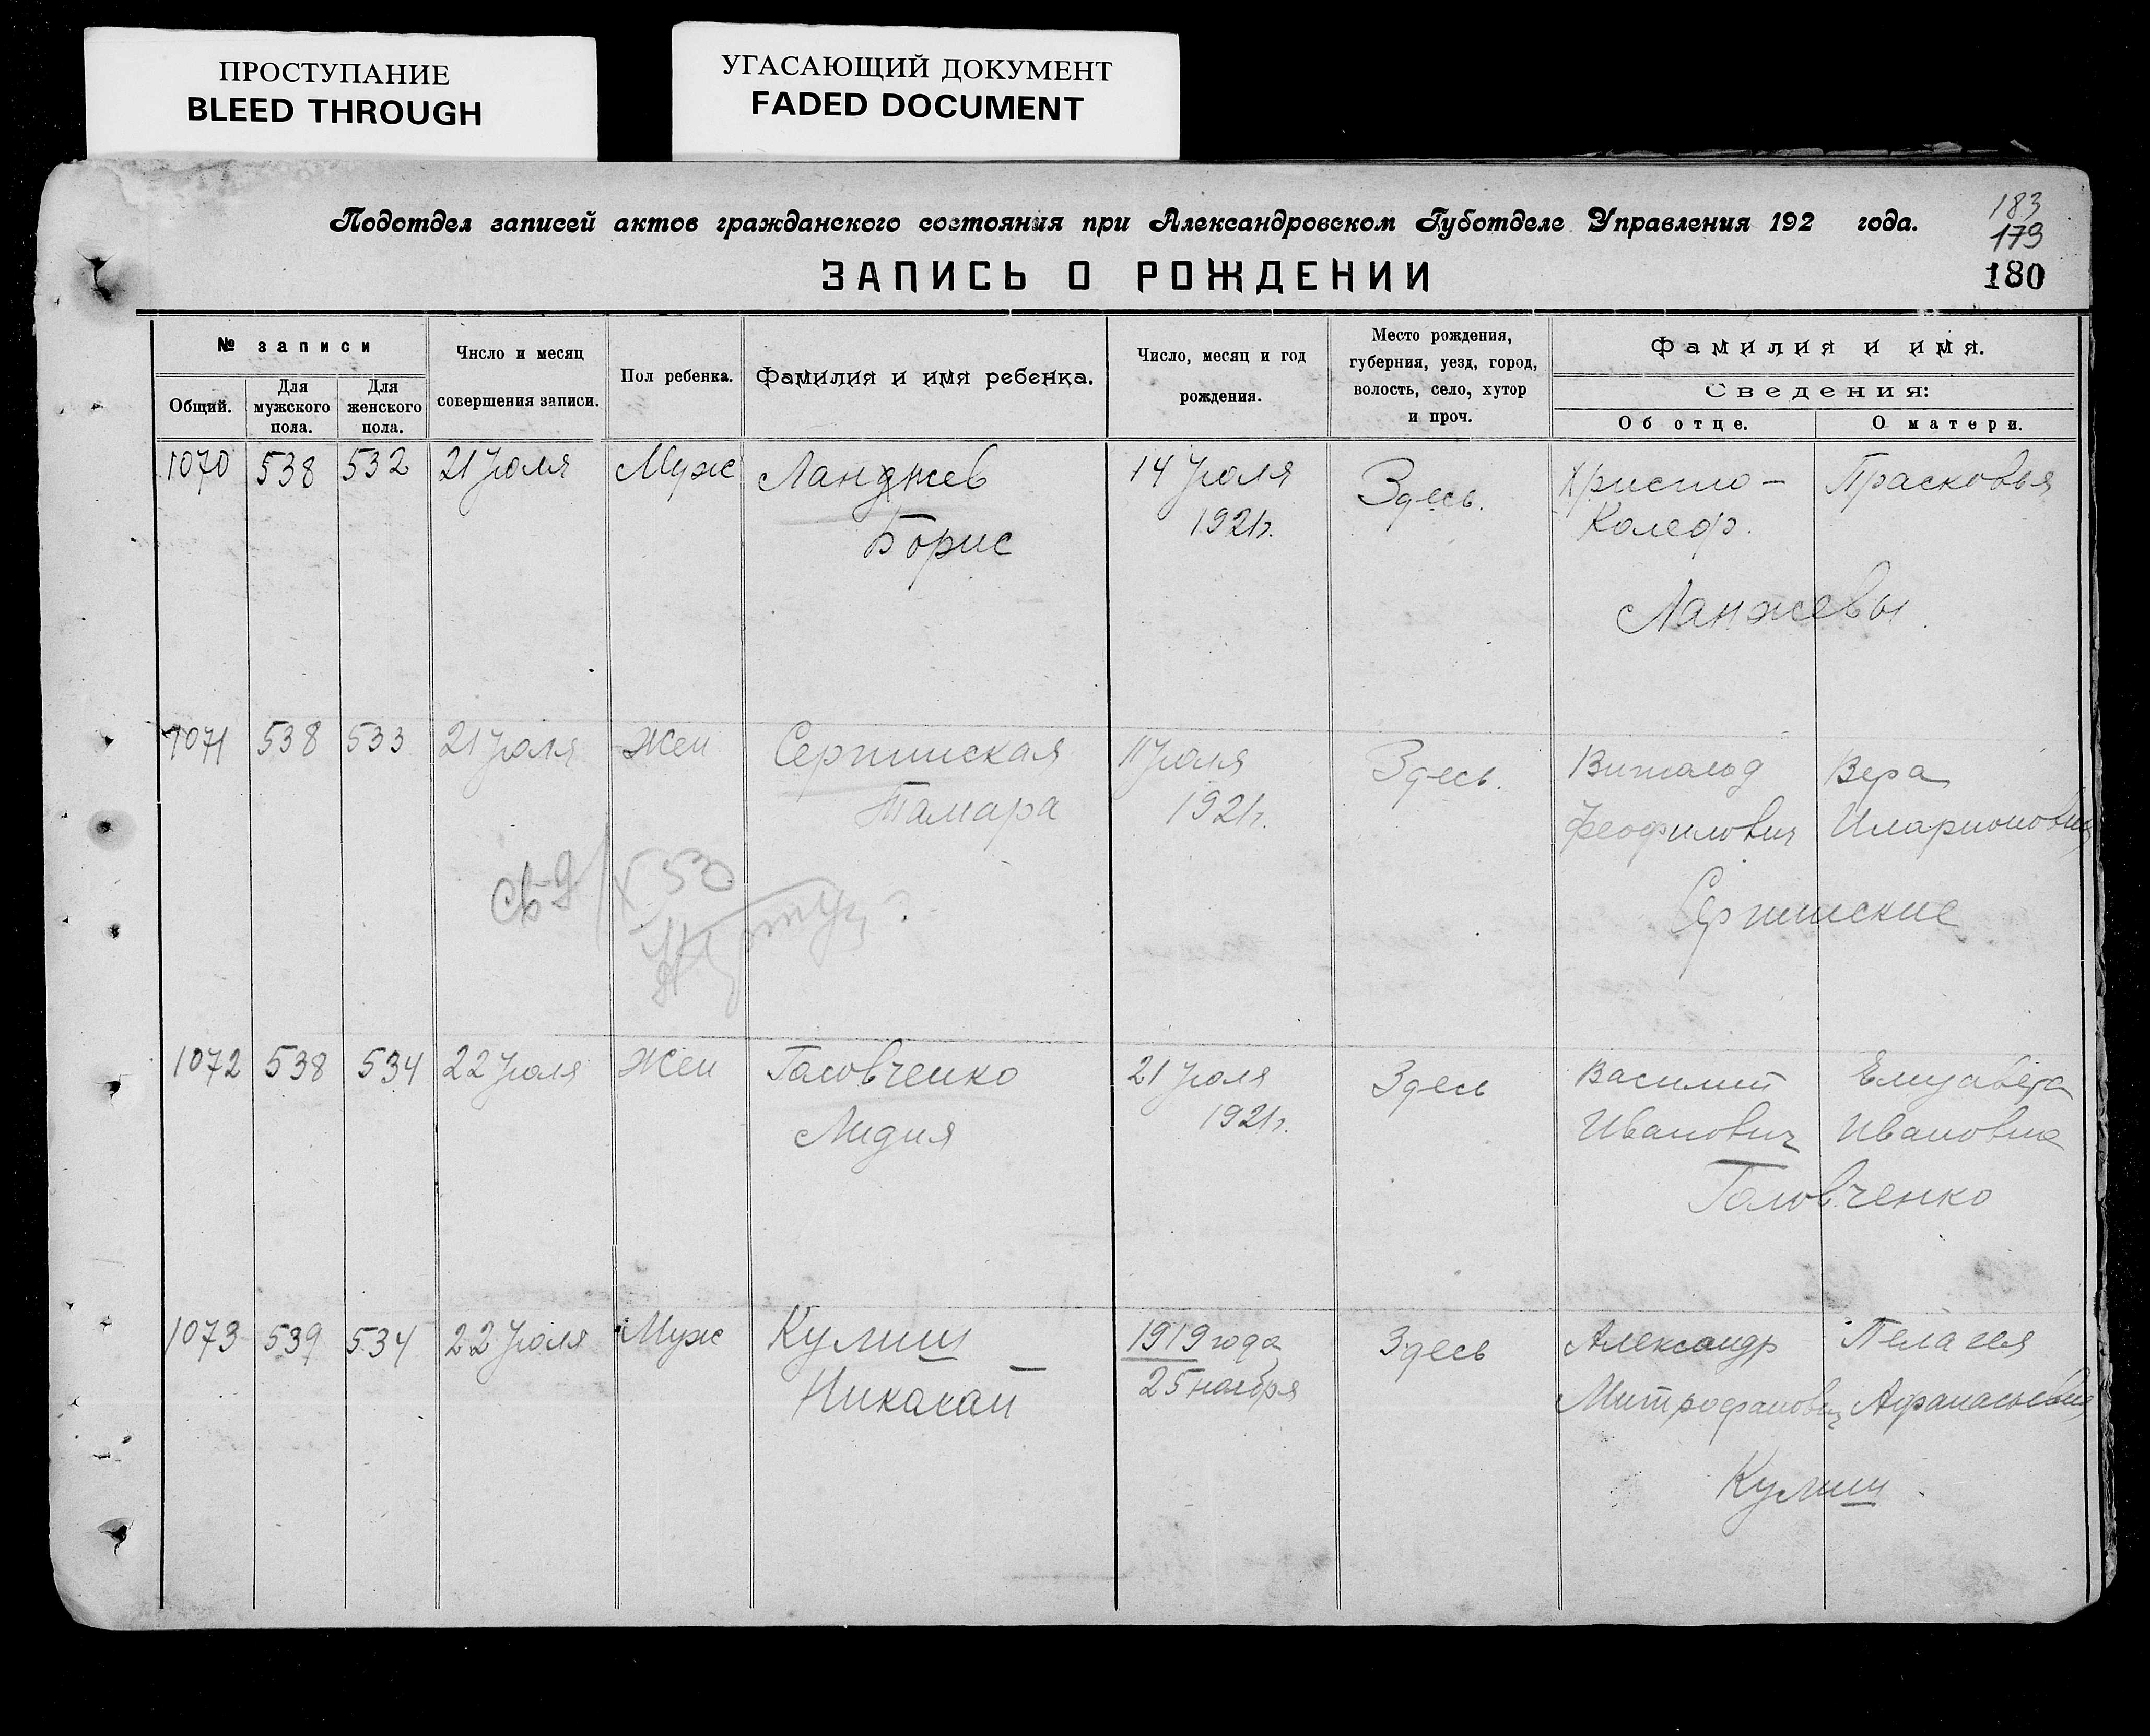 ПРОСТУПАНИЕ
BLEED THROUGH
УГАСАЮЩИЙ ДОКУМЕНТ
FADED DOCUMENT
183
179
180
Подотдел записей актов гражданского состояния при Александровском Губотделе Управления 192 года.
ЗАПИСЬ О РОЖДЕНИИ
№ записи
Общий.
Для мужского пола.
Для женского пола.
Число и месяц
совершения записи.
Пол ребенка.
Фамилия и имя ребенка.
Число, месяц и год
рождения.
Место рождения,
губерния, уезд, город,
волость, село, хутор
и проч.
Фамилия и имя.
Сведения:
Об отце.
О матери.
1070 538 532 21 Июля Муж Ланджев 14 Июля Здесь. Христо- Прасковья
Борис 1921г.
Ланжевы
1071 538 533 21 Июля Жен 11 Июля Здесь. Витольд Вера
Тамара 1921г. Феофилович Иларионовна
1072 538 534 22 Июля Жен Головченко 21 Июля Здесь Василий Елизавета
Лидия 1921г. Иванович Ивановна
Головченко
1073 539 534 22 Июля Муж Кулиш 1919 года Здесь Александр Пелагея
Николай 25 ноября Митрофанович Афанасьевна
Кулиш